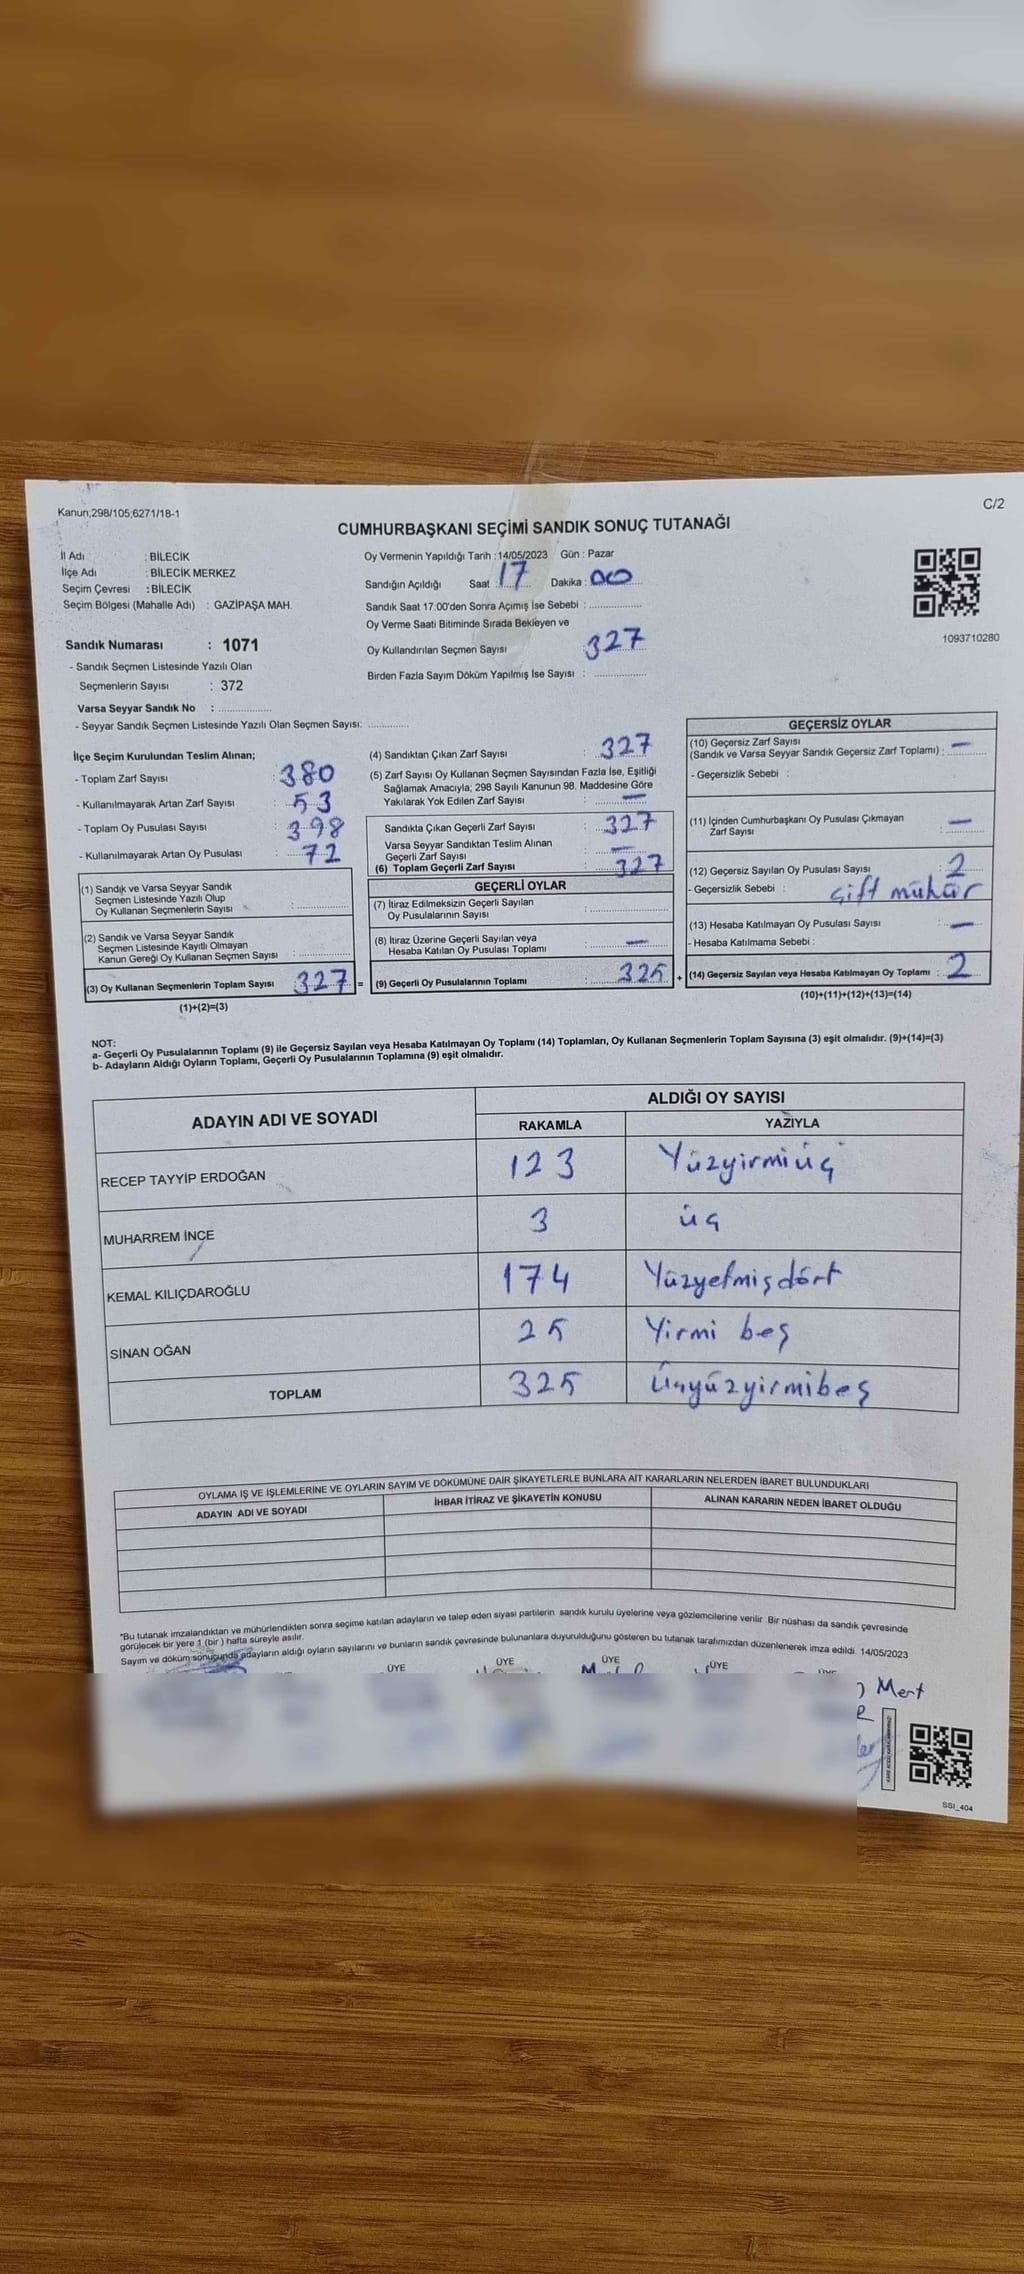 Kanun,298/105,6271/18-1
C/2
CUMHURBAŞKANI SEÇİMİ SANDIK SONUÇ TUTANAĞI
İl Adı : BİLECİK
İlçe Adı : BİLECİK MERKEZ
Seçim Çevresi : BİLECİK
Seçim Bölgesi (Mahalle Adı) : GAZİPAŞA MAH.
Sandık Numarası : 1071
- Sandık Seçmen Listesinde Yazılı Olan
Seçmenlerin Sayısı : 372
Varsa Seyyar Sandık No :
- Seyyar Sandık Seçmen Listesinde Yazılı Olan Seçmen Sayısı:
Oy Vermenin Yapıldığı Tarih : 14/05/2023 Gün : Pazar
Sandığın Açıldığı Saat : 17 Dakika : 00
Sandık Saat 17:00'den Sonra Açımış İse Sebebi :
Oy Verme Saati Bitiminde Sırada Bekleyen ve
Oy Kullandırılan Seçmen Sayısı : 327
Birden Fazla Sayım Döküm Yapılmış İse Sayısı :
1093710280
İlçe Seçim Kurulundan Teslim Alınan;
- Toplam Zarf Sayısı : 380
- Kullanılmayarak Artan Zarf Sayısı : 53
- Toplam Oy Pusulası Sayısı : 398
- Kullanılmayarak Artan Oy Pusulası : 72
(1) Sandık ve Varsa Seyyar Sandık
Seçmen Listesinde Yazılı Olup
Oy Kullanan Seçmenlerin Sayısı :
(2) Sandık ve Varsa Seyyar Sandık
Seçmen Listesinde Kayıtlı Olmayan
Kanun Gereği Oy Kullanan Seçmen Sayısı :
(3) Oy Kullanan Seçmenlerin Toplam Sayısı 327 =
(1)+(2)=(3)
(4) Sandıktan Çıkan Zarf Sayısı : 327
(5) Zarf Sayısı Oy Kullanan Seçmen Sayısından Fazla İse, Eşitliği
Sağlamak Amacıyla; 298 Sayılı Kanunun 98. Maddesine Göre
Yakılarak Yok Edilen Zarf Sayısı : —
Sandıkta Çıkan Geçerli Zarf Sayısı : 327
Varsa Seyyar Sandıktan Teslim Alınan
Geçerli Zarf Sayısı : —
(6) Toplam Geçerli Zarf Sayısı : 327
GEÇERLİ OYLAR
(7) İtiraz Edilmeksizin Geçerli Sayılan
Oy Pusulalarının Sayısı :
(8) İtiraz Üzerine Geçerli Sayılan veya
Hesaba Katılan Oy Pusulası Toplamı : —
(9) Geçerli Oy Pusulalarının Toplamı : 325 +
GEÇERSİZ OYLAR
(10) Geçersiz Zarf Sayısı
(Sandık ve Varsa Seyyar Sandık Geçersiz Zarf Toplamı) : —
- Geçersizlik Sebebi :
(11) İçinden Cumhurbaşkanı Oy Pusulası Çıkmayan
Zarf Sayısı : —
(12) Geçersiz Sayılan Oy Pusulası Sayısı : 2
- Geçersizlik Sebebi : Çift mühür
(13) Hesaba Katılmayan Oy Pusulası Sayısı : —
- Hesaba Katılmama Sebebi :
(14) Geçersiz Sayılan veya Hesaba Katılmayan Oy Toplamı : 2
(10)+(11)+(12)+(13)=(14)
NOT:
a- Geçerli Oy Pusulalarının Toplamı (9) ile Geçersiz Sayılan veya Hesaba Katılmayan Oy Toplamı (14) Toplamları, Oy Kullanan Seçmenlerin Toplam Sayısına (3) eşit olmalıdır. (9)+(14)=(3)
b- Adayların Aldığı Oyların Toplamı, Geçerli Oy Pusulalarının Toplamına (9) eşit olmalıdır.
ADAYIN ADI VE SOYADI
ALDIĞI OY SAYISI
RAKAMLA YAZIYLA
RECEP TAYYİP ERDOĞAN 123 Yüzyirmiüç
MUHARREM İNCE 3 üç
KEMAL KILIÇDAROĞLU 174 Yüzyetmişdört
SİNAN OĞAN 25 Yirmi beş
TOPLAM 325 Üçyüzyirmibeş
OYLAMA İŞ VE İŞLEMLERİNE VE OYLARIN SAYIM VE DÖKÜMÜNE DAİR ŞİKAYETLERLE BUNLARA AİT KARARLARIN NELERDEN İBARET BULUNDUKLARI
ADAYIN ADI VE SOYADI İHBAR İTİRAZ VE ŞİKAYETİN KONUSU ALINAN KARARIN NEDEN İBARET OLDUĞU
*Bu tutanak imzalandıktan ve mühürlendikten sonra seçime katılan adayların ve talep eden siyasi partilerin sandık kurulu üyelerine veya gözlemcilerine verilir. Bir nüshası da sandık çevresinde
görülecek bir yere 1 (bir) hafta süreyle asılır.
Sayım ve döküm sonucunda adayların aldığı oyların sayılarını ve bunların sandık çevresinde bulunanlara duyurulduğunu gösteren bu tutanak tarafımızdan düzenlenerek imza edildi. 14/05/2023
ÜYE ÜYE ÜYE ÜYE
Mert
SSI_404